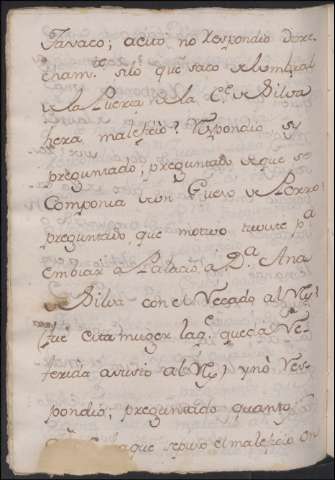 Tavaco; acito no Respondio dere
chamte silo que saco del umbral
de la Puerta de la Ce. de Silva
hera malefizio? Respondio si
preguntado, preguntado de que se
componia de un Guevo de Perro?
preguntado que motivo tuviste pa
embiar a Palacio, a Da Ana
de Silva con el Recado al Rey
que esta muger la qe queda Re-
ferida asistio al Rey y no Res-
pondio; preguntado quanto
que sepuso el malefizio en